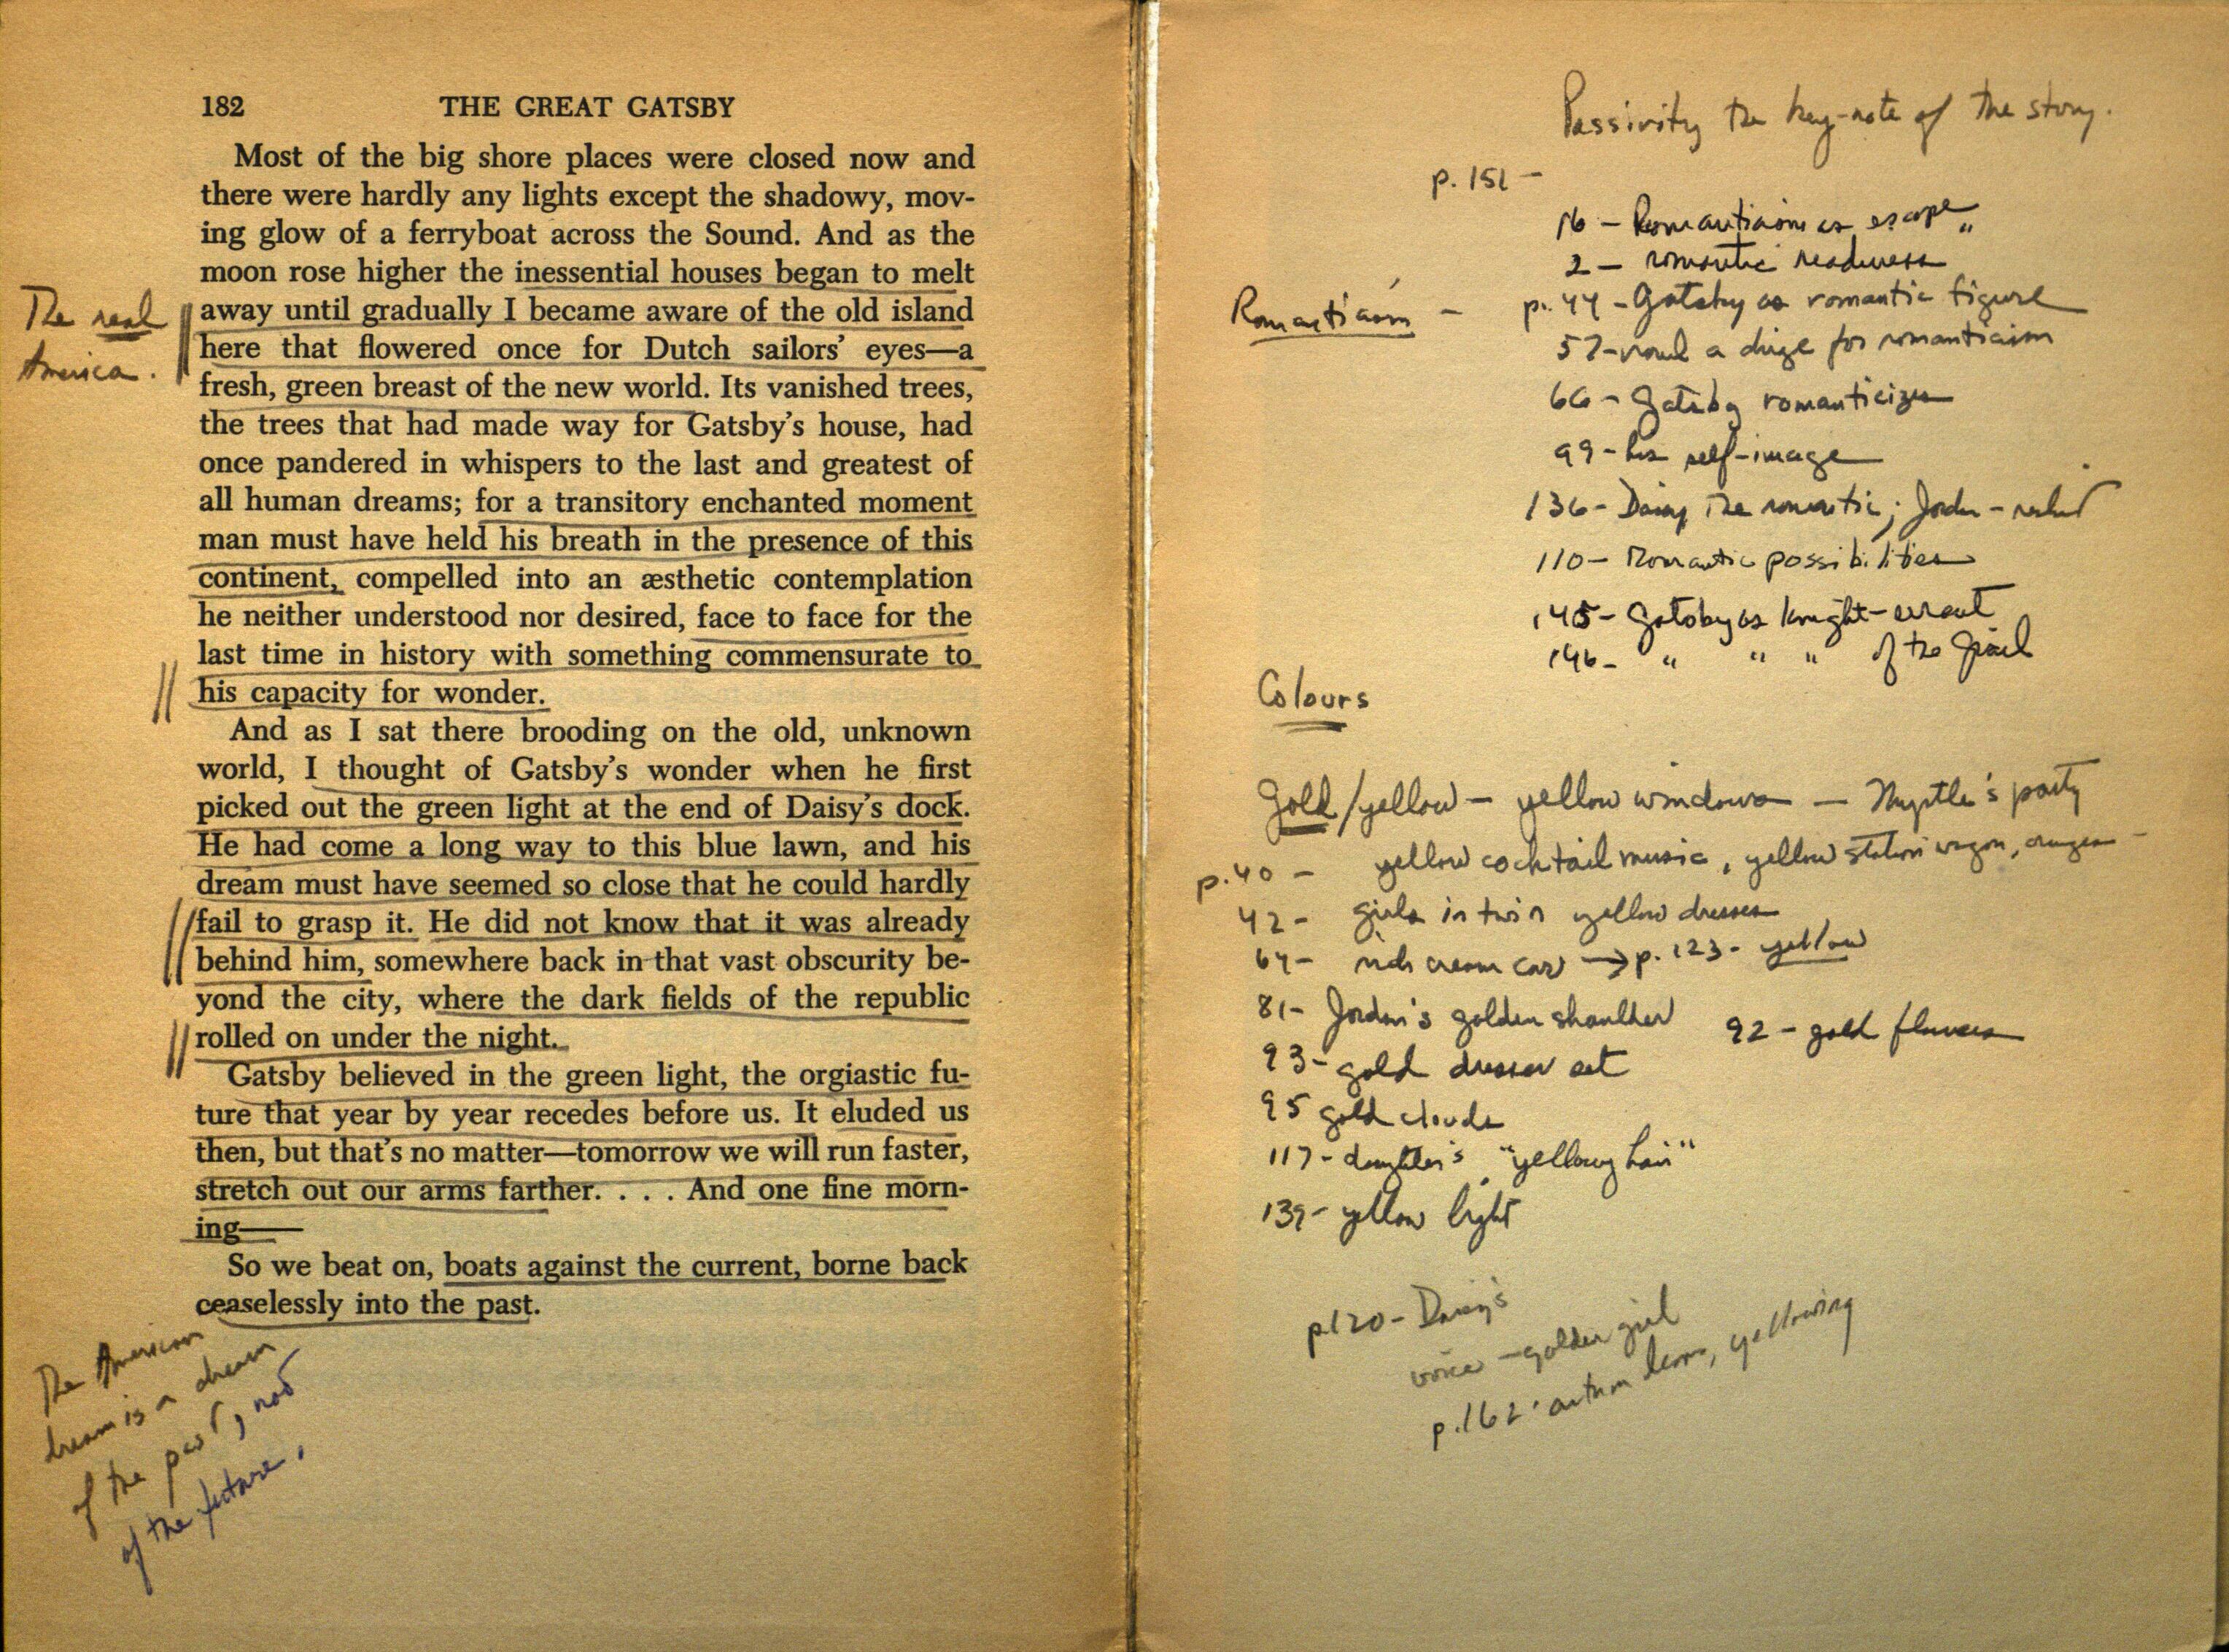 182 THE GREAT GATSBY
Most of the big shore places were closed now and
there were hardly any lights except the shadowy, mov-
ing glow of a ferryboat across the Sound. And as the
moon rose higher the inessential houses began to melt
away until gradually I became aware of the old island
here that flowered once for Dutch sailors' eyes—a
fresh, green breast of the new world. Its vanished trees,
the trees that had made way for Gatsby's house, had
once pandered in whispers to the last and greatest of
all human dreams; for a transitory enchanted moment
man must have held his breath in the presence of this
continent, compelled into an æsthetic contemplation
he neither understood nor desired, face to face for the
last time in history with something commensurate to
his capacity for wonder.
And as I sat there brooding on the old, unknown
world, I thought of Gatsby's wonder when he first
picked out the green light at the end of Daisy's dock.
He had come a long way to this blue lawn, and his
dream must have seemed so close that he could hardly
fail to grasp it. He did not know that it was already
behind him, somewhere back in that vast obscurity be-
yond the city, where the dark fields of the republic
rolled on under the night.
Gatsby believed in the green light, the orgiastic fu-
ture that year by year recedes before us. It eluded us
then, but that's no matter—tomorrow we will run faster,
stretch out our arms farther. . . . And one fine morn-
ing——
So we beat on, boats against the current, borne back
ceaselessly into the past.
The real
America.
The American
dream is a dream
of the past, not
of the future.
Passivity the key-note of the story.
p. 151 -
16 - Romanticism as escape
2 - romantic readiness
Romanticism - p. 44 - Gatsby as romantic figure
57 - novel a dirge for romanticism
66 - Gatsby romanticizes
99 - his self-image
136 - Daisy the romantic; Jordan - realist
110 - Romantic possibilities
145 - Gatsby as knight-errant
146 - " " " of the Grail
Colours
Gold/yellow - yellow windows - Myrtle's party
p. 40 - yellow cocktail music, yellow station wagon, oranges -
42 - girls in twin yellow dresses
64 - rich cream car → p. 123 - yellow
81 - Jordan's golden shoulder
92 - gold flowers
93 - gold dresser set
95 gold clouds
117 - daughter's "yellowy hair"
139 - yellow light
p.120 - Daisy's
voice - golden girl
p.162 - autumn leaves, yellowing